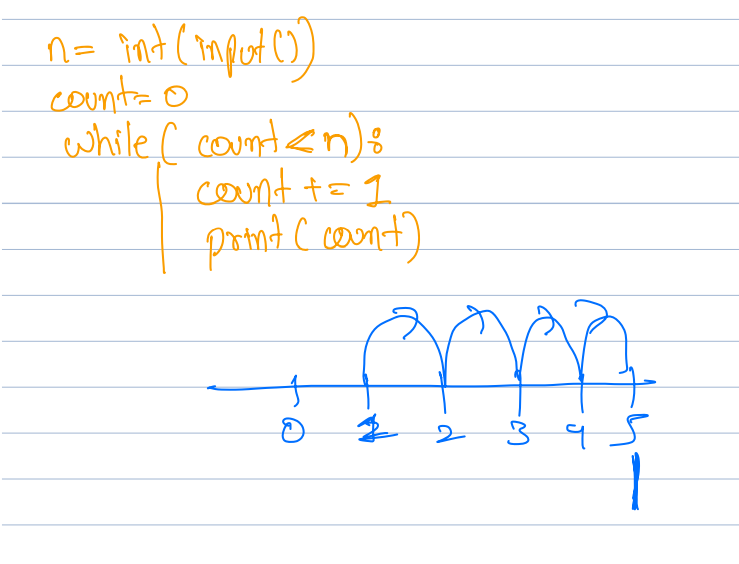 n= int(input())
count= 0
while( count<n):
count += 1
print( count)
0 1 2 3 4 5